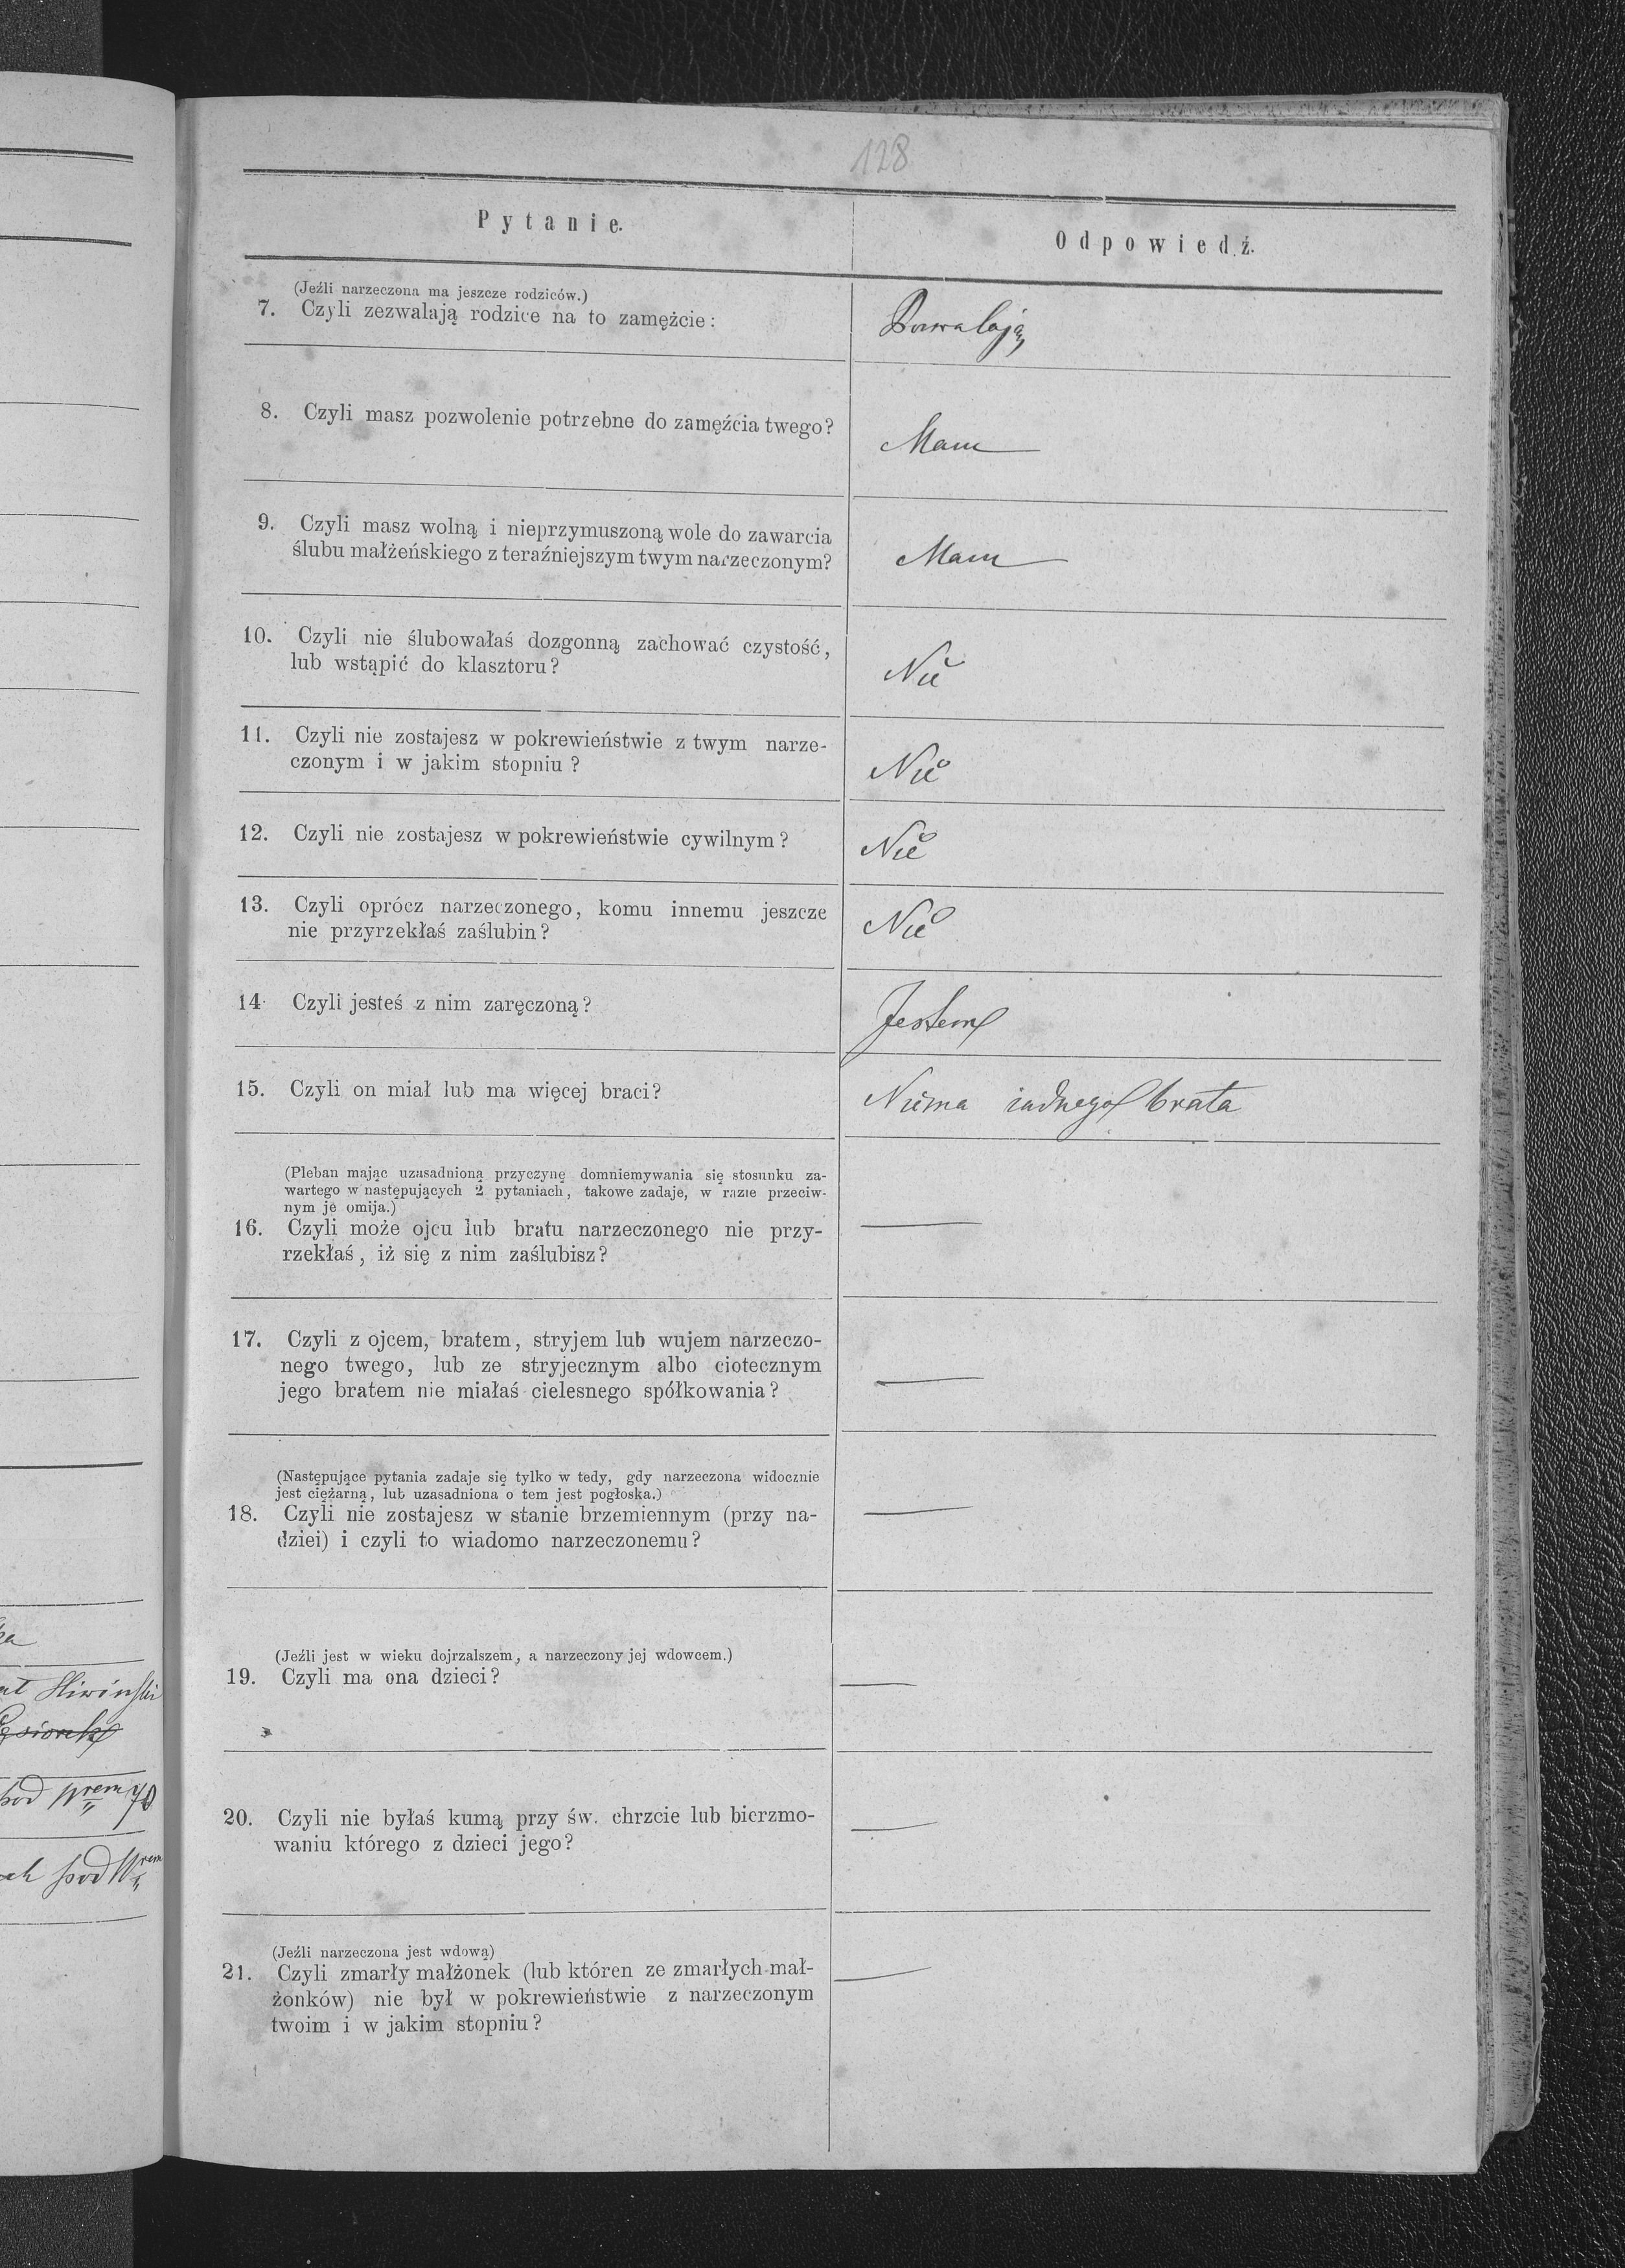 128
Pytanie.
Odpowiedź.
(Jeźli narzeczona ma jeszcze rodziców.)
7. Czyli zezwalają rodzice na to zamężcie:
Pozwalają
8. Czyli masz pozwolenie potrzebne do zamęźcia twego?
Mam
9. Czyli masz wolną i nieprzymuszoną wole do zawarcia
ślubu małżeńskiego z teraźniejszym twym narzeczonym?
Mam
10. Czyli nie ślubowałaś dozgonną zachować czystość,
lub wstąpić do klasztoru?
Nie
11. Czyli nie zostajesz w pokrewieństwie z twym narze-
czonym i w jakim stopniu?
Nie
12. Czyli nie zostajesz w pokrewieństwie cywilnym?
Nie
13. Czyli oprócz narzeczonego, komu innemu jeszcze
nie przyrzekłaś zaślubin?
Nie
14. Czyli jesteś z nim zaręczoną?
Jestem
15. Czyli on miał lub ma więcej braci?
Niema żadnego brata
(Pleban mając uzasadnioną przyczynę domniemywania się stosunku za-
wartego w następujących 2 pytaniach, takowe zadaje, w razie przeciw-
nym je omija.)
16. Czyli może ojcu lub bratu narzeczonego nie przy-
rzekłaś, iż się z nim zaślubisz?
17. Czyli z ojcem, bratem, stryjem lub wujem narzeczo-
nego twego, lub ze stryjecznym albo ciotecznym
jego bratem nie miałaś cielesnego spółkowania?
(Następujące pytania zadaje się tylko w tedy, gdy narzeczona widocznie
jest ciężarną, lub uzasadniona o tem jest pogłoska.)
18. Czyli nie zostajesz w stanie brzemiennym (przy na-
dziei) i czyli to wiadomo narzeczonemu?
(Jeźli jest w wieku dojrzalszem, a narzeczony jej wdowcem.)
19. Czyli ma ona dzieci?
20. Czyli nie byłaś kumą przy św. chrzcie lub bierzmo-
waniu którego z dzieci jego?
(Jeźli narzeczona jest wdową)
21. Czyli zmarły małżonek (lub któren ze zmarłych mał-
żonków) nie był w pokrewieństwie z narzeczonym
twoim i w jakim stopniu?